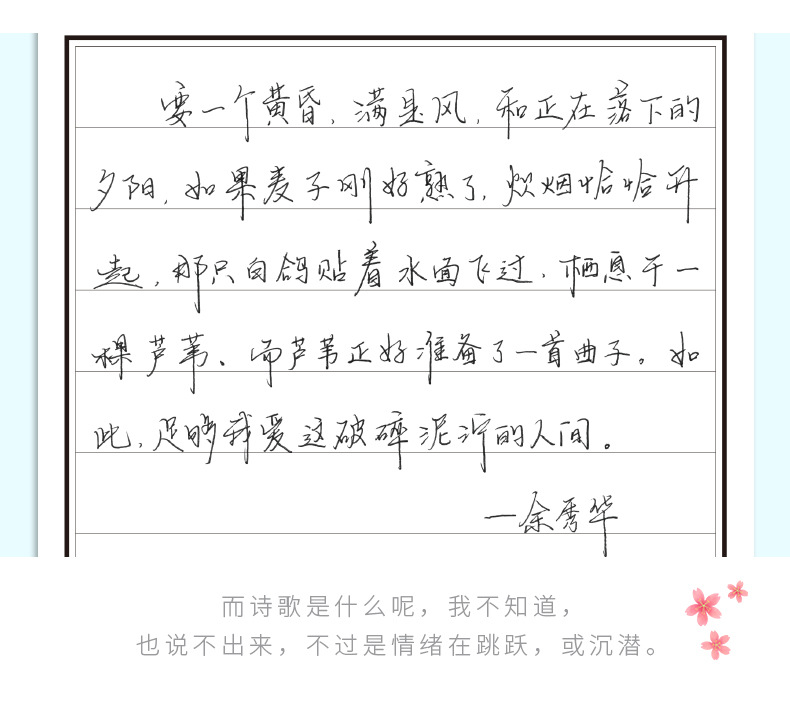 要一个黄昏，满是风，和正在落下的
夕阳，如果麦子刚好熟了，炊烟恰恰升
起，那只白鸽贴着水面飞过，栖息于一
棵芦苇、而芦苇正好准备了一首曲子。如
此，足够我爱这破碎泥泞的人间。
—余秀华
而诗歌是什么呢，我不知道，
也说不出来，不过是情绪在跳跃，或沉潜。